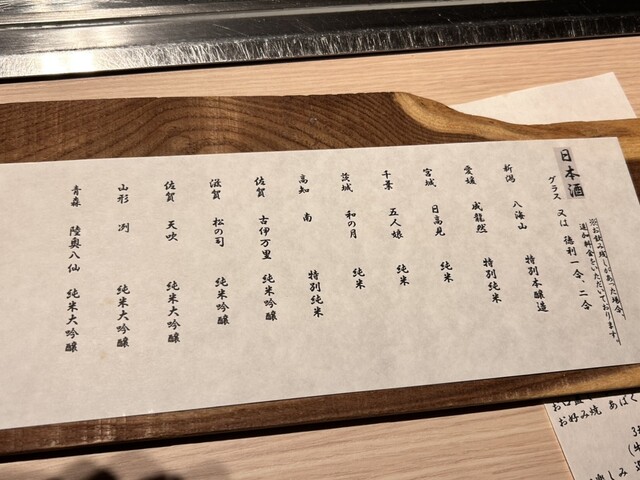 日本酒
グラス 又は 徳利一合、二合
※お飲み残しがあった場合、
追加料金をいただいております。
新潟 八海山 特別本醸造
愛媛 成龍然 特別純米
宮城 日高見 純米
千葉 五人娘 純米
茨城 和の月 純米
高知 南 特別純米
佐賀 古伊万里 純米吟醸
滋賀 松の司 純米吟醸
佐賀 天吹 純米大吟醸
山形 冽 純米大吟醸
青森 陸奥八仙 純米大吟醸
お好み焼